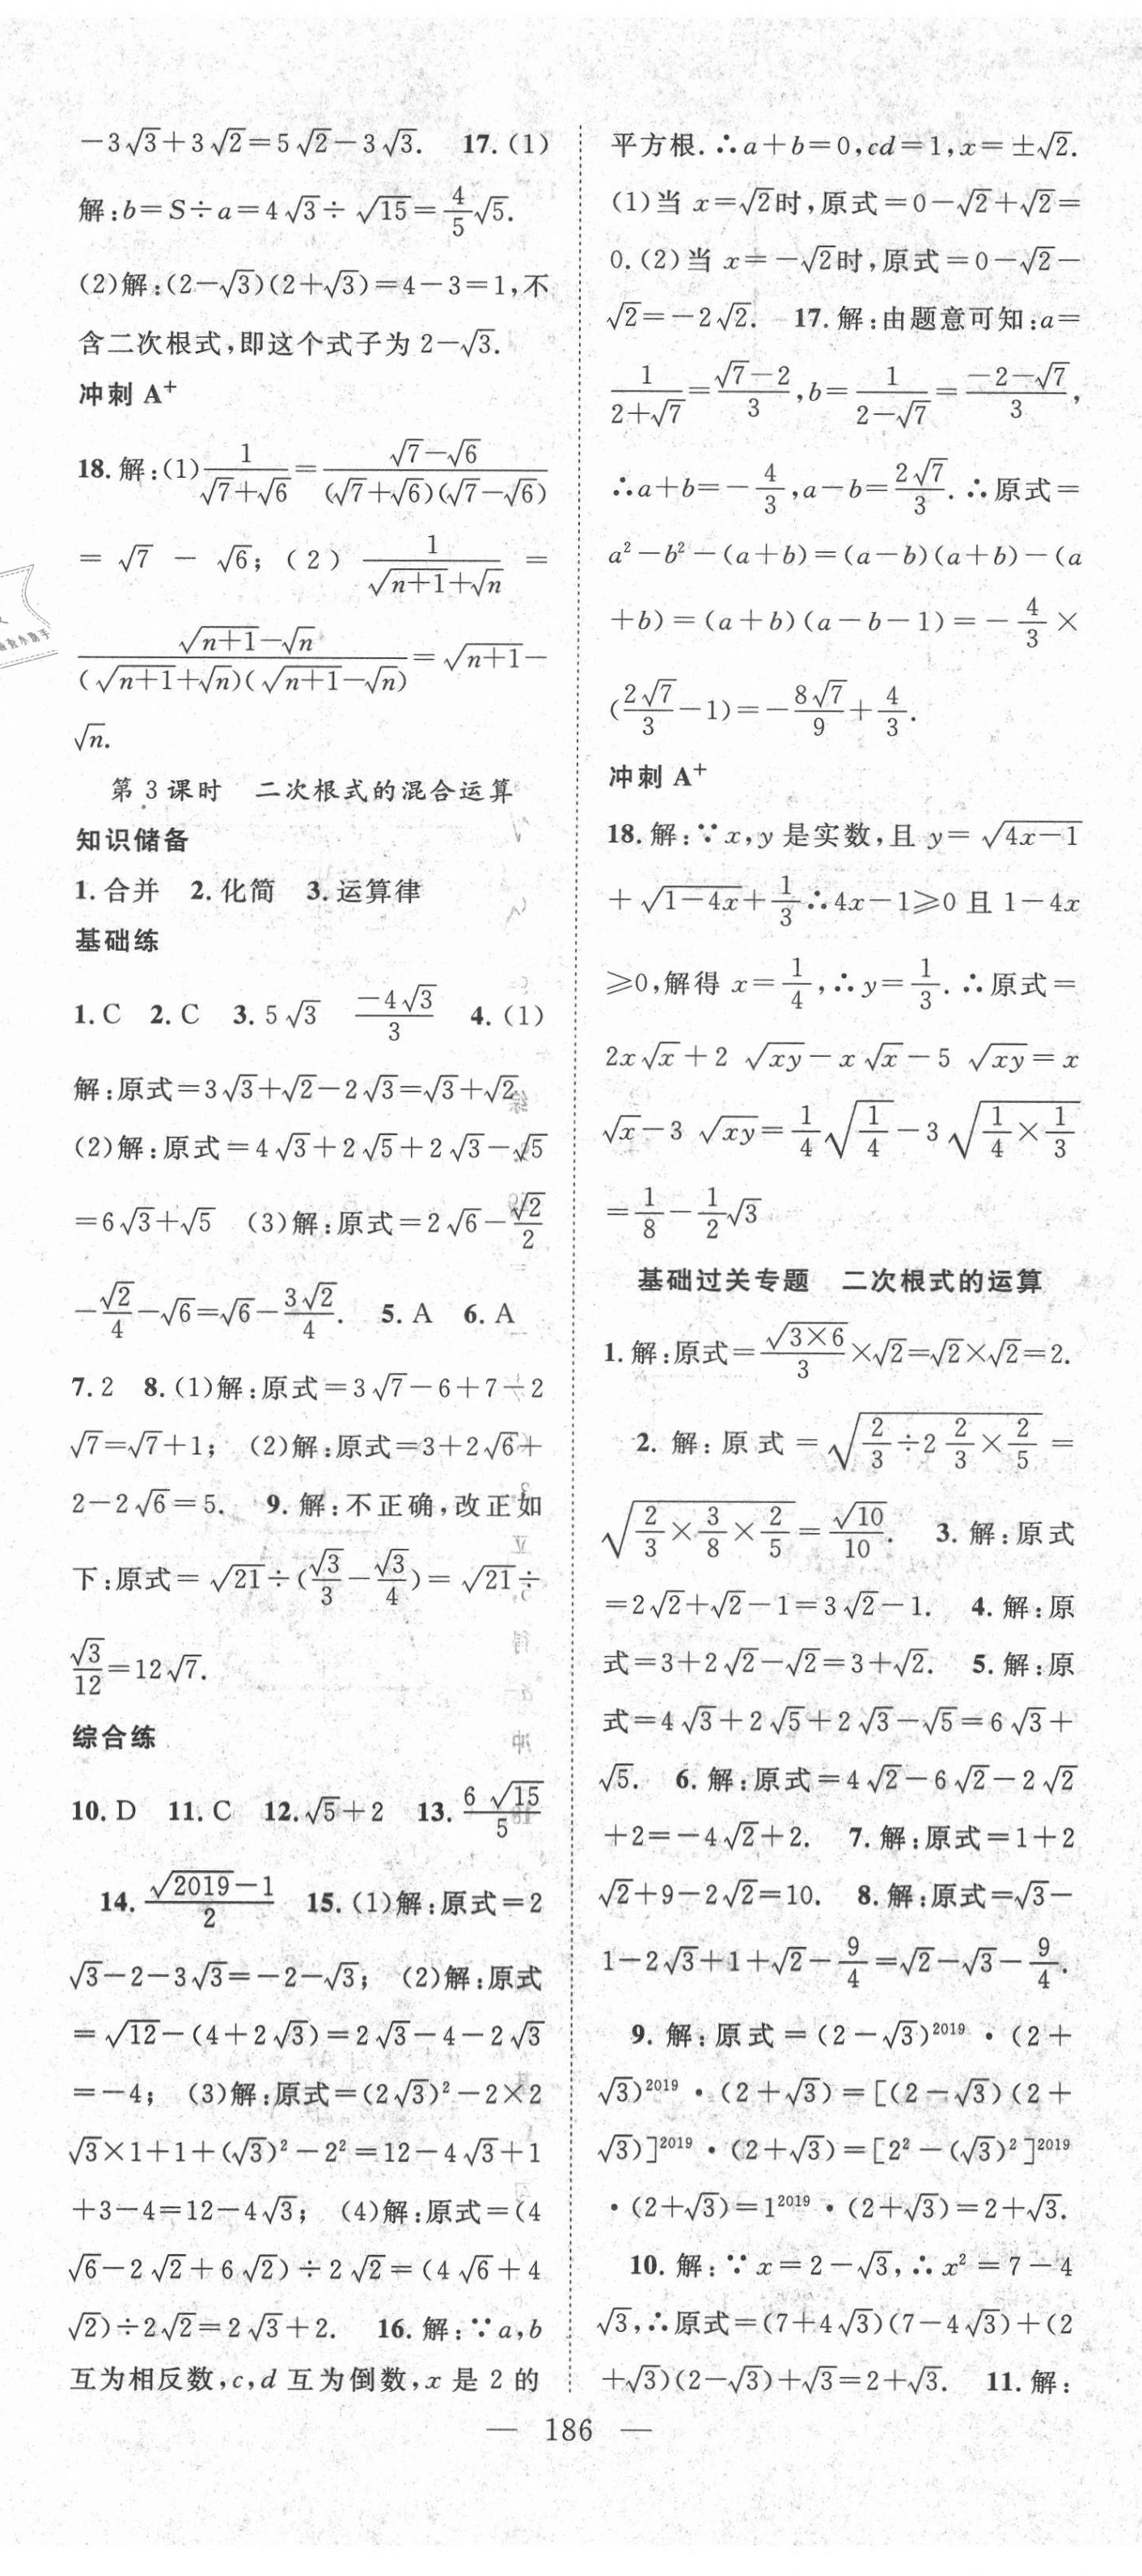 －3√3＋3√2＝5√2－3√3.　17.(1)
解:b＝S÷a＝4√3÷√15＝4/5√5.
(2)解:(2－√3)(2＋√3)＝4－3＝1,不
含二次根式,即这个式子为 2－√3.
冲刺 A⁺
18.解:(1)1/(√7＋√6)＝(√7－√6)/((√7＋√6)(√7－√6))
＝√7－√6;(2)1/(√(n＋1)＋√n)＝
(√(n＋1)－√n)/((√(n＋1)＋√n)(√(n＋1)－√n))＝√(n＋1)－
√n.
第 3 课时　二次根式的混合运算
知识储备
1.合并　2.化简　3.运算律
基础练
1.C　2.C　3.5√3　(－4√3)/3　4.(1)
解:原式＝3√3＋√2－2√3＝√3＋√2
(2)解:原式＝4√3＋2√5＋2√3－√5
＝6√3＋√5　(3)解:原式＝2√6－√2/2
－√2/4－√6＝√6－3√2/4.　5.A　6.A
7.2　8.(1)解:原式＝3√7－6＋7－2
√7＝√7＋1;　(2)解:原式＝3＋2√6＋
2－2√6＝5.　9.解:不正确,改正如
下:原式＝√21÷(√3/3－√3/4)＝√21÷
√3/12＝12√7.
综合练
10.D　11.C　12.√5＋2　13.6√15/5
14.(√2019－1)/2　15.(1)解:原式＝2
√3－2－3√3＝－2－√3;　(2)解:原式
＝√12－(4＋2√3)＝2√3－4－2√3
＝－4;　(3)解:原式＝(2√3)²－2×2
√3×1＋1＋(√3)²－2²＝12－4√3＋1
＋3－4＝12－4√3;　(4)解:原式＝(4
√6－2√2＋6√2)÷2√2＝(4√6＋4
√2)÷2√2＝2√3＋2.　16.解:∵a,b
互为相反数,c,d 互为倒数,x 是 2 的
平方根.∴a＋b＝0,cd＝1,x＝±√2.
(1)当 x＝√2时,原式＝0－√2＋√2＝
0.(2)当 x＝－√2时,原式＝0－√2－
√2＝－2√2.　17.解:由题意可知:a＝
1/(2＋√7)＝(√7－2)/3,b＝1/(2－√7)＝(－2－√7)/3,
∴a＋b＝－4/3,a－b＝2√7/3.∴原式＝
a²－b²－(a＋b)＝(a－b)(a＋b)－(a
＋b)＝(a＋b)(a－b－1)＝－4/3×
(2√7/3－1)＝－8√7/9＋4/3.
冲刺 A⁺
18.解:∵x,y 是实数,且 y＝√(4x－1)
＋√(1－4x)＋1/3∴4x－1≥0 且 1－4x
≥0,解得 x＝1/4,∴y＝1/3.∴原式＝
2x√x＋2√(xy)－x√x－5√(xy)＝x
√x－3√(xy)＝1/4√(1/4)－3√(1/4×1/3)
＝1/8－1/2√3
基础过关专题　二次根式的运算
1.解:原式＝√(3×6)/3×√2＝√2×√2＝2.
2.解:原式＝√(2/3÷2 2/3×2/5)＝
√(2/3×3/8×2/5)＝√10/10.　3.解:原式
＝2√2＋√2－1＝3√2－1.　4.解:原
式＝3＋2√2－√2＝3＋√2.　5.解:原
式＝4√3＋2√5＋2√3－√5＝6√3＋
√5.　6.解:原式＝4√2－6√2－2√2
＋2＝－4√2＋2.　7.解:原式＝1＋2
√2＋9－2√2＝10.　8.解:原式＝√3－
1－2√3＋1＋√2－9/4＝√2－√3－9/4.
9.解:原式＝(2－√3)²⁰¹⁹·(2＋
√3)²⁰¹⁹·(2＋√3)＝[(2－√3)(2＋
√3)]²⁰¹⁹·(2＋√3)＝[2²－(√3)²]²⁰¹⁹
·(2＋√3)＝1²⁰¹⁹·(2＋√3)＝2＋√3.
10.解:∵x＝2－√3,∴x²＝7－4
√3,∴原式＝(7＋4√3)(7－4√3)＋(2
＋√3)(2－√3)＋√3＝2＋√3.　11.解:
— 186 —